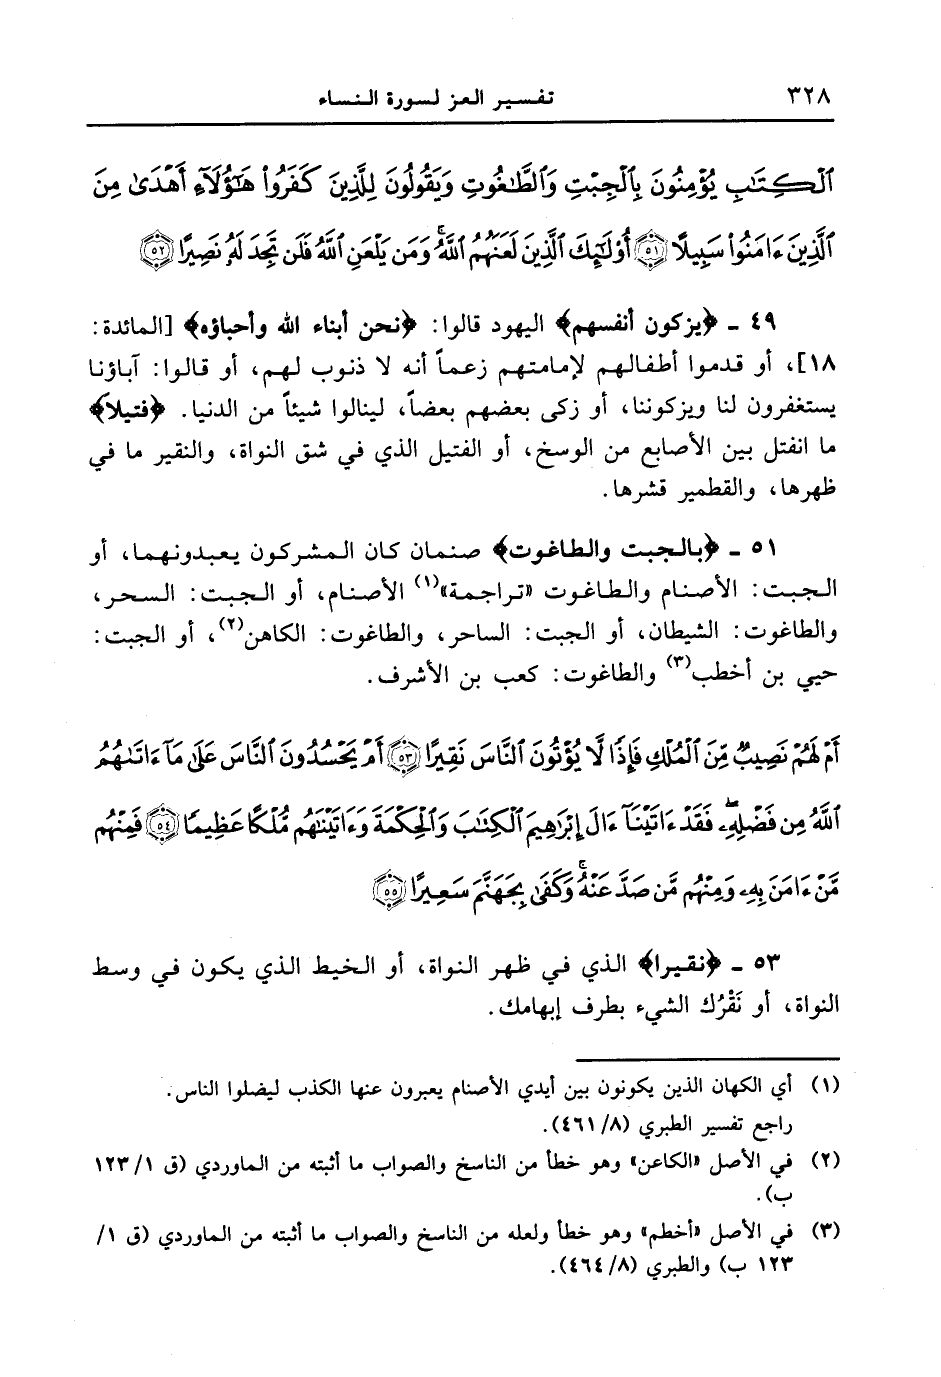 ٣٢٨ تفسير العز لسورة النساء
ٱلْكِتَٰبِ يُؤْمِنُونَ بِٱلْجِبْتِ وَٱلطَّٰغُوتِ وَيَقُولُونَ لِلَّذِينَ كَفَرُوا۟ هَٰٓؤُلَآءِ أَهْدَىٰ مِنَ
ٱلَّذِينَ ءَامَنُوا۟ سَبِيلًا ﴿٥١﴾ أُو۟لَٰٓئِكَ ٱلَّذِينَ لَعَنَهُمُ ٱللَّهُ ۖ وَمَن يَلْعَنِ ٱللَّهُ فَلَن تَجِدَ لَهُۥ نَصِيرًا ﴿٥٢﴾
٤٩ ـ ﴿يزكون أنفسهم﴾ اليهود قالوا: ﴿نحن أبناء الله وأحباؤه﴾ [المائدة:
١٨]، أو قدموا أطفالهم لإمامتهم زعماً أنه لا ذنوب لهم، أو قالوا: آباؤنا
يستغفرون لنا ويزكوننا، أو زكى بعضهم بعضاً، لينالوا شيئاً من الدنيا. ﴿فتيلا﴾
ما انفتل بين الأصابع من الوسخ، أو الفتيل الذي في شق النواة، والنقير ما في
ظهرها، والقطمير قشرها.
٥١ ـ ﴿بالجبت والطاغوت﴾ صنمان كان المشركون يعبدونهما، أو
الجبت: الأصنام والطاغوت «تراجمة»(١) الأصنام، أو الجبت: السحر،
والطاغوت: الشيطان، أو الجبت: الساحر، والطاغوت: الكاهن(٢)، أو الجبت:
حيي بن أخطب(٣) والطاغوت: كعب بن الأشرف.
أَمْ لَهُمْ نَصِيبٌ مِّنَ ٱلْمُلْكِ فَإِذًا لَّا يُؤْتُونَ ٱلنَّاسَ نَقِيرًا ﴿٥٣﴾ أَمْ يَحْسُدُونَ ٱلنَّاسَ عَلَىٰ مَآ ءَاتَىٰهُمُ
ٱللَّهُ مِن فَضْلِهِۦ ۖ فَقَدْ ءَاتَيْنَآ ءَالَ إِبْرَٰهِيمَ ٱلْكِتَٰبَ وَٱلْحِكْمَةَ وَءَاتَيْنَٰهُم مُّلْكًا عَظِيمًا ﴿٥٤﴾ فَمِنْهُم
مَّنْ ءَامَنَ بِهِۦ وَمِنْهُم مَّن صَدَّ عَنْهُ ۚ وَكَفَىٰ بِجَهَنَّمَ سَعِيرًا ﴿٥٥﴾
٥٣ ـ ﴿نقيرا﴾ الذي في ظهر النواة، أو الخيط الذي يكون في وسط
النواة، أو نَقْرُك الشيء بطرف إبهامك.
(١) أي الكهان الذين يكونون بين أيدي الأصنام يعبرون عنها الكذب ليضلوا الناس.
راجع تفسير الطبري (٨/٤٦١).
(٢) في الأصل «الكاعن» وهو خطأ من الناسخ والصواب ما أثبته من الماوردي (ق ١/١٢٣
ب).
(٣) في الأصل «أخطم» وهو خطأ ولعله من الناسخ والصواب ما أثبته من الماوردي (ق ١/
١٢٣ ب) والطبري (٨/٤٦٤).